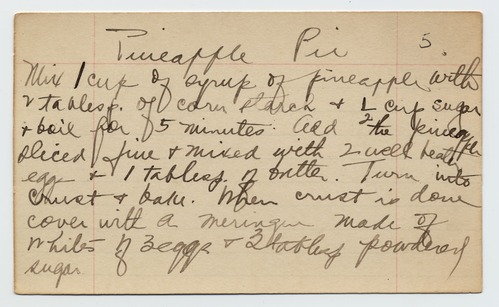 Pineapple Pie 5.
Mix 1 cup of syrup of pineapple with
2 tablesp. of corn starch & 1/2 cup sugar
& boil for 5 minutes. Add the pineapple
sliced fine & mixed with 2 well beat
eggs & 1 tablesp of butter. Turn into
crust & bake. When crust is done
cover with a meringue made of
whites of 3 eggs & 3 tablesp powdered
sugar